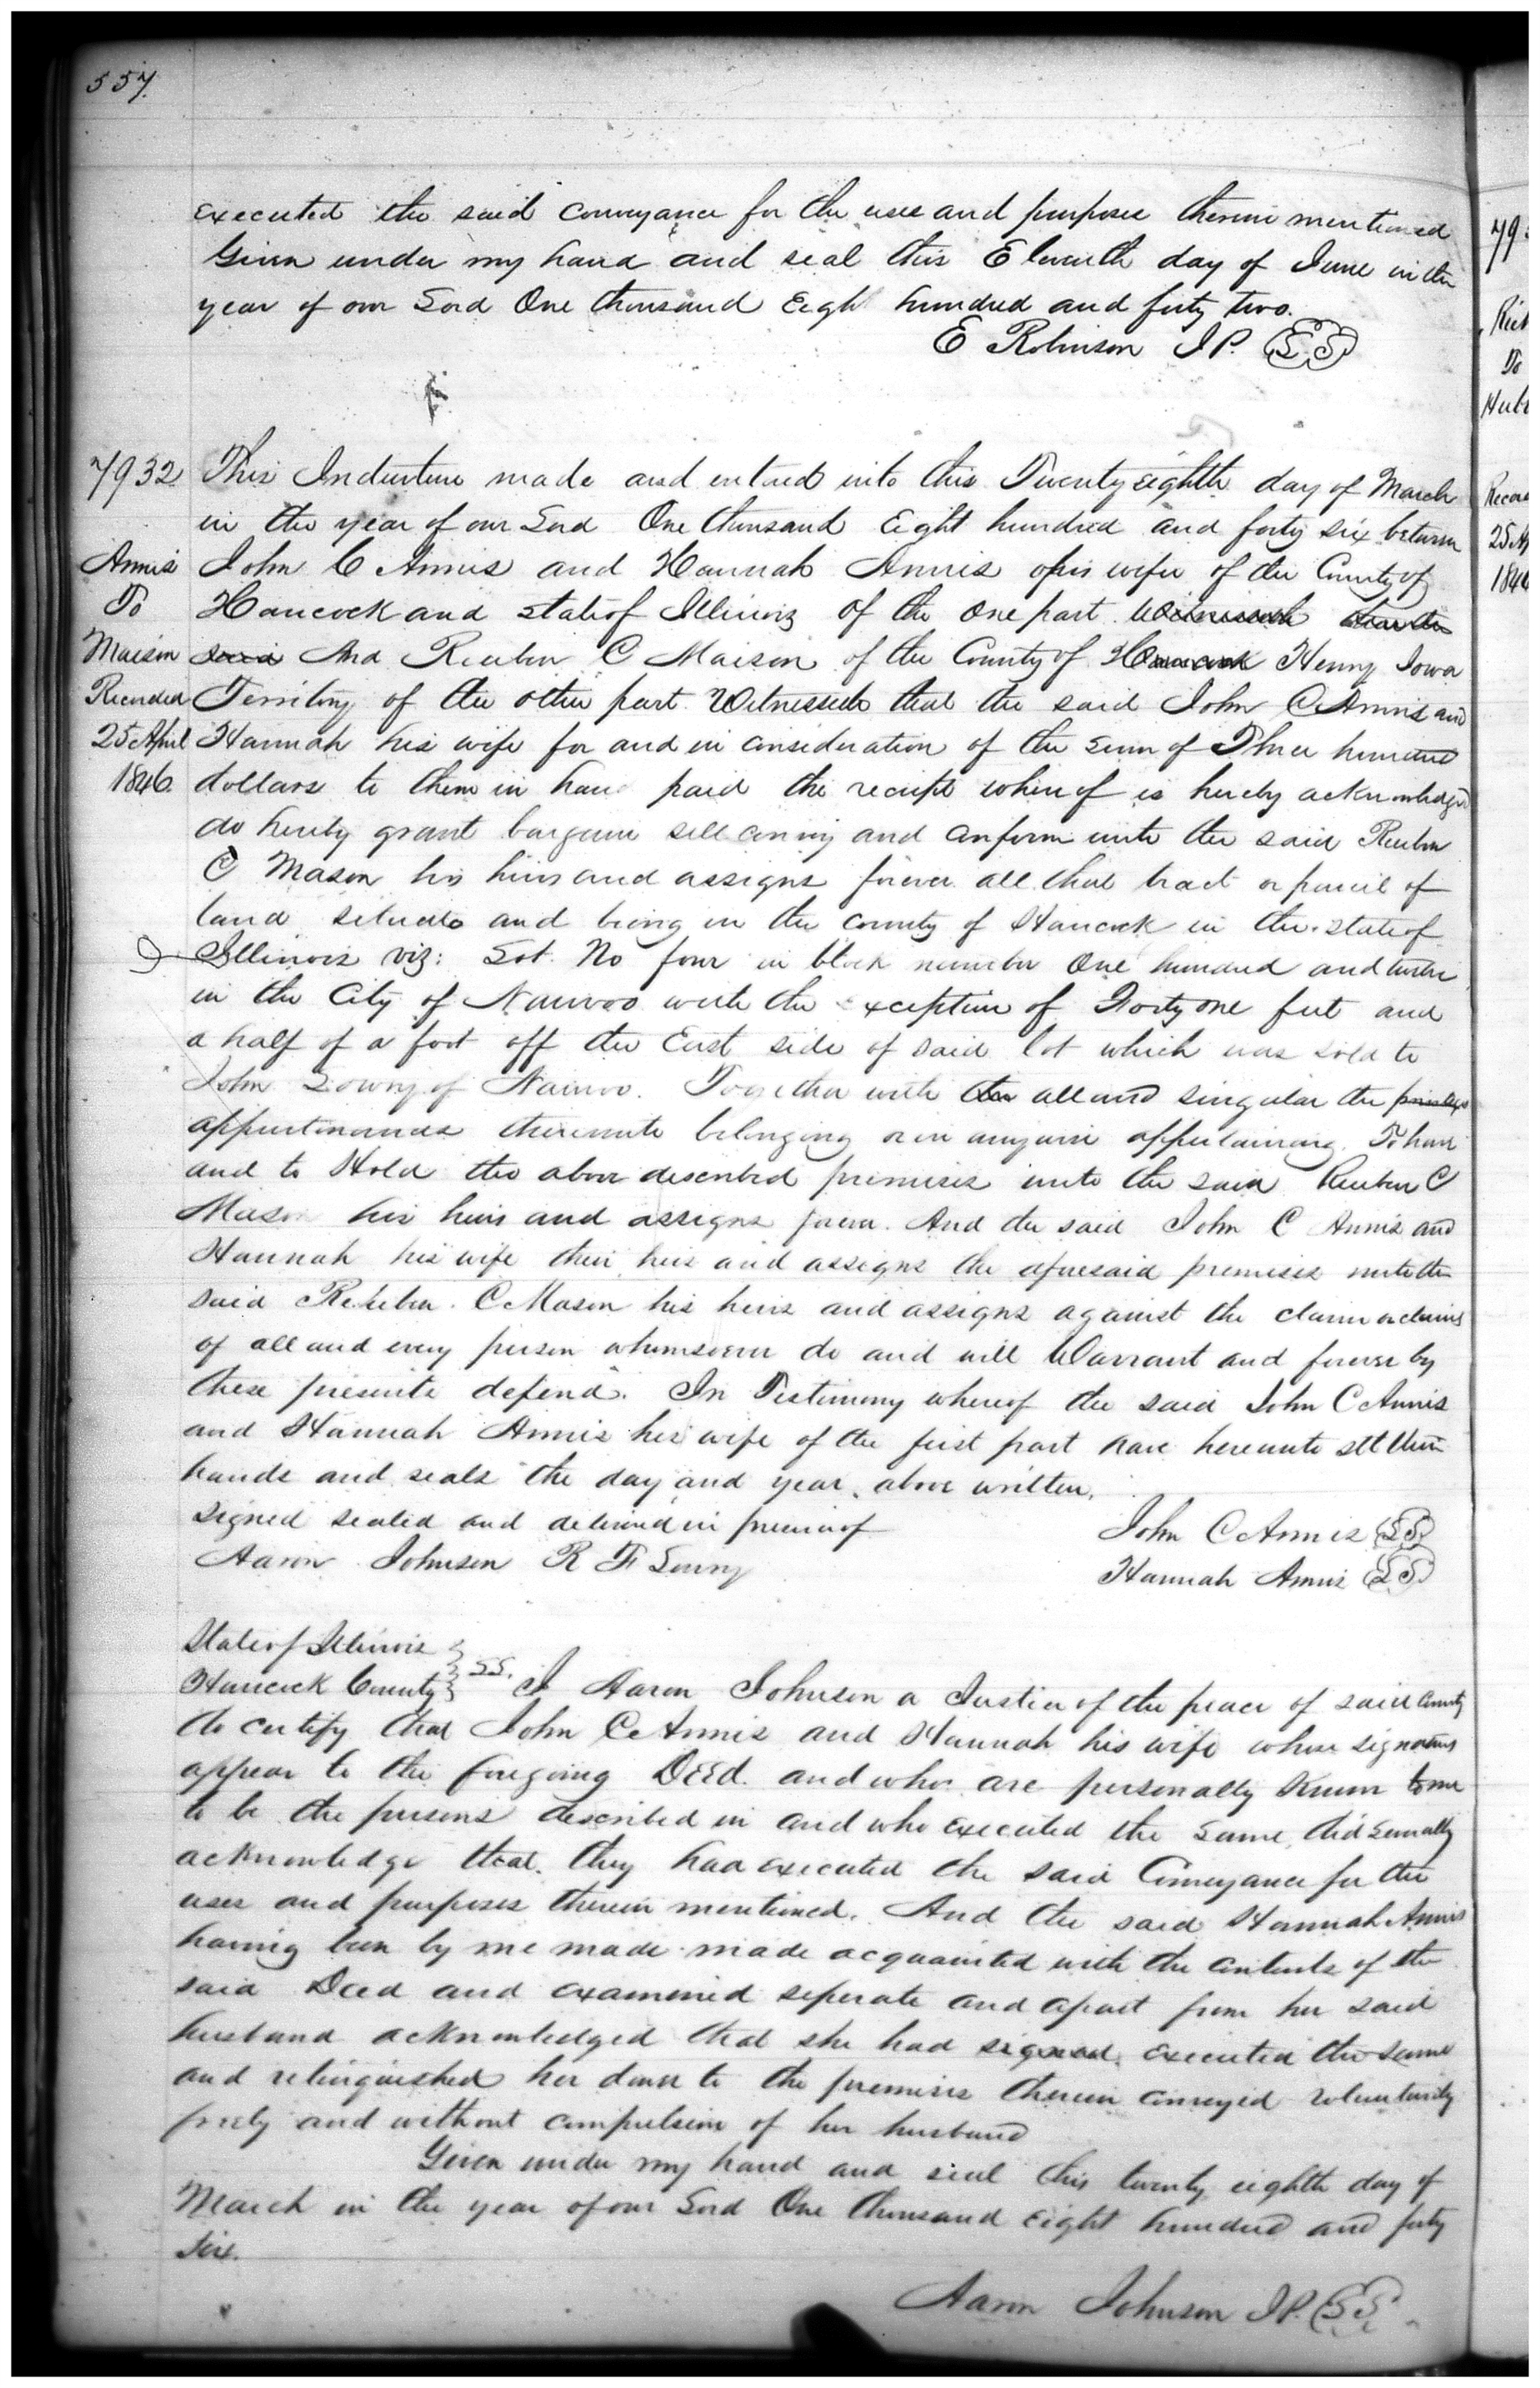 557.
executed the said conveyance for the uses and purposes therein mentioned
Given under my hand and seal this Eleventh day of June in the
year of our Lord One thousand Eight hundred and forty two.
E Robinson J P. (LS)
7932
Annis
To
Maison
Recorded
25 April
1846.
This Indenture made and entered into this Twenty eighth day of March
in the year of our Lord One thousand Eight hundred and forty six between
John C Annis and Hannah Annis his wife of the County of
Hancock and state of Illinois of the one part Witnesseth that the
said And Reuben C Maison of the County of Hancock Henry Iowa
Territory of the other part. Witnesseth that the said John C Annis and
Hannah his wife for and in consideration of the sum of Three hundred
dollars to them in hand paid the receipt whereof is hereby acknowledged
do hereby grant bargain sell convey and confirm unto the said Reuben
C Mason his heirs and assigns forever all that tract or parcil of
land situate and being in the county of Hancock in the state of
Illinois viz: Lot No four in block number One hundred and twelve
in the City of Nauvoo with the exception of Forty one feet and
a half of a foot off the East side of said lot which was sold to
John Lowry of Nauvoo. Together with the all and singular the privileges
appurtenances thereunto belonging or in anywise appertaining. To have
and to Hold the above described premises unto the said Reuben C
Mason his heirs and assigns forever. And the said John C Annis and
Hannah his wife their heirs and assigns the aforesaid premises unto the
said Reuben. C Mason his heirs and assigns against the claim or claims
of all and every person whomsoever do and will Warrant and forever by
these presents defend. In Testimony whereof the said John C Annis
and Hannah Annis his wife of the first part have hereunto sett their
hands and seals the day and year above written.
Signed sealed and delivered in presence of
Aaron Johnson R F Lowry
John C Annis (LS)
Hannah Annis (LS)
State of Illinois
Hancock County } SS. I Aaron Johnson a Justice of the peace of said County
do certify that John C Annis and Hannah his wife whose signatures
appear to the foregoing Deed. and who are personally known to me
to be the persons described in and who executed the same, did severally
acknowledge that they had executed the said Conveyance for the
uses and purposes therein mentioned. And the said Hannah Annis
having been by me made made acquainted with the contents of the
said Deed and examined seperate and apart from her said
husband acknowledged that she had signed, executed the same
and relinquished her dower to the premises therein conveyed voluntarily
freely and without compulsion of her husband
Given under my hand and seal this twenty eighth day of
March in the year of our Lord One thousand Eight hundred and forty
six.
Aaron Johnson J P. (LS)
79
To
25
184